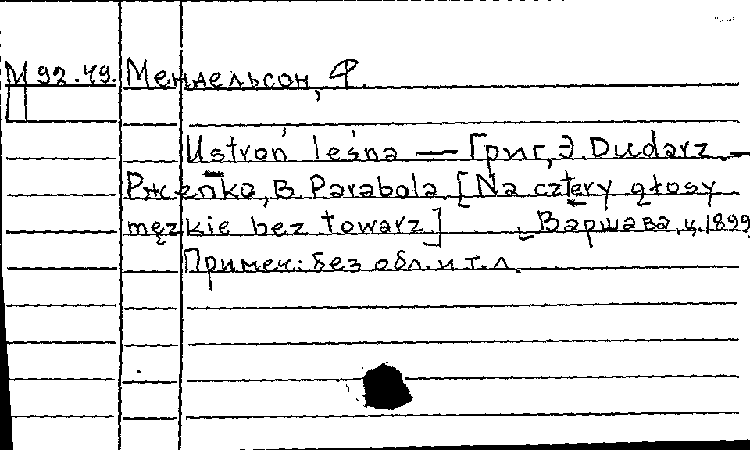 М 92.49. Мендельсон, Ф.
Ustroń leśna — Григ, Э. Dudarz. —
Ржепко, В. Parabola. [Na cztery głosy
męzkie bez towarz.] Варшава, ц. 1899
Примеч.: без обл. и т. л.